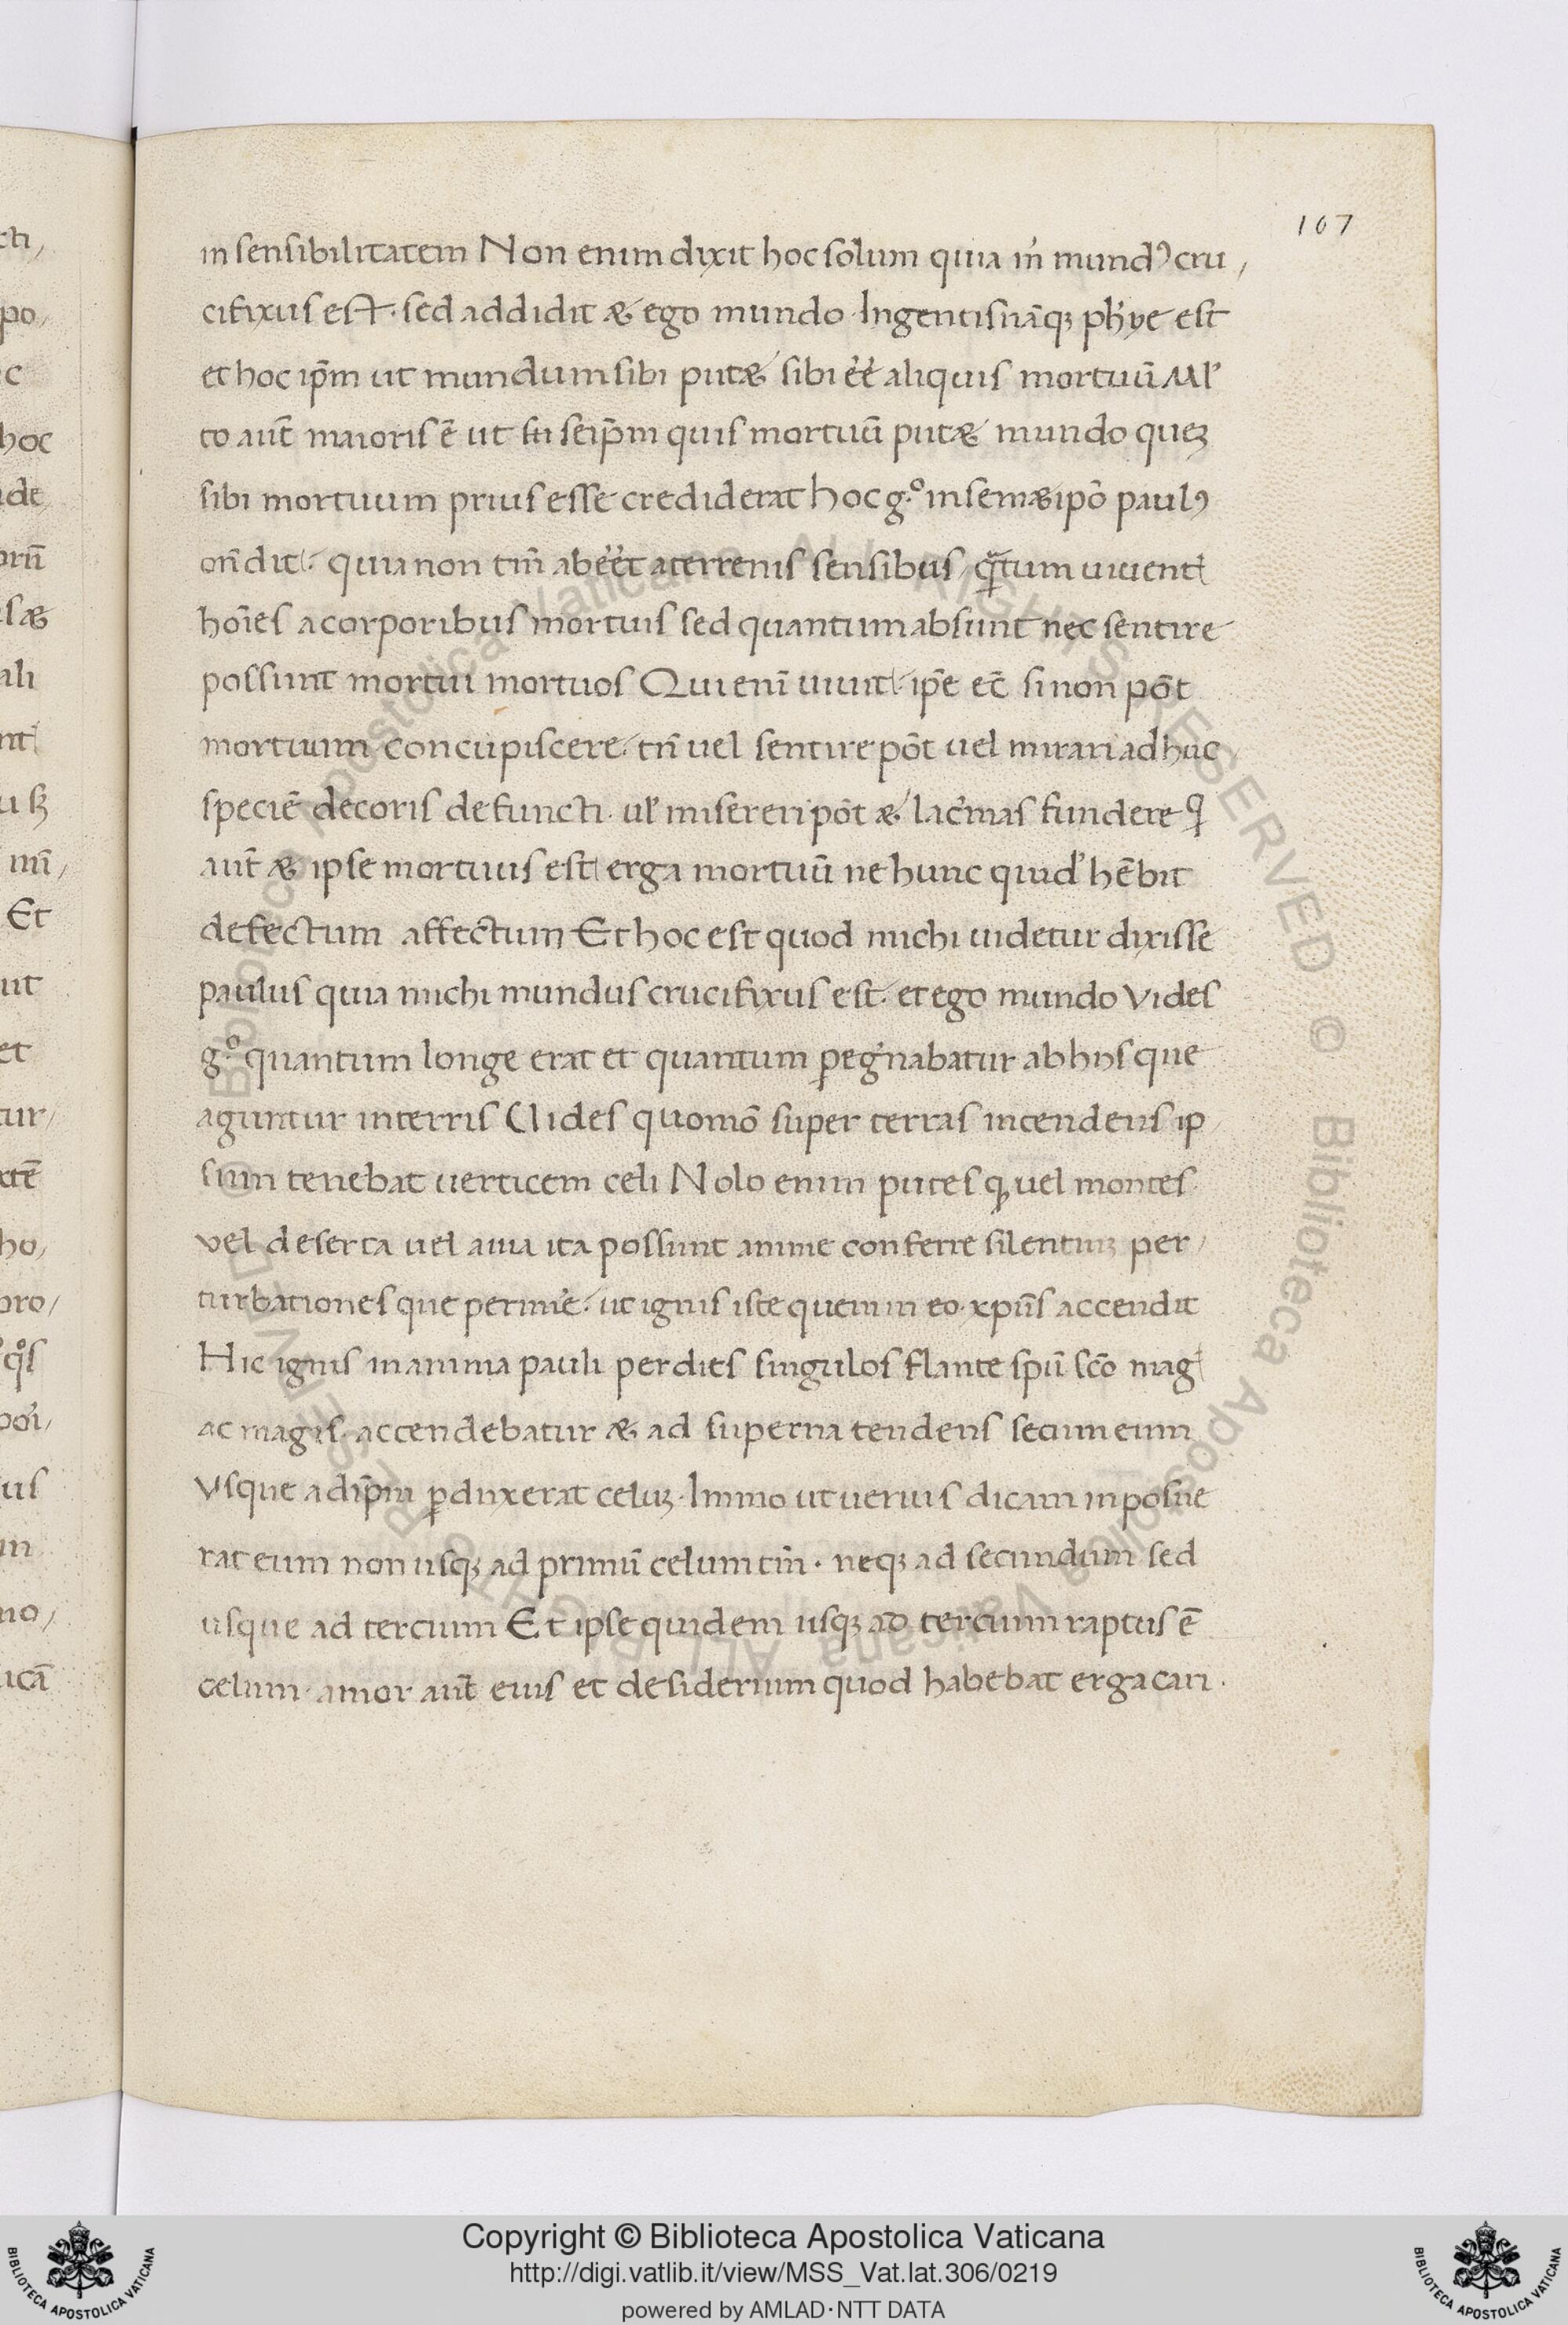 107
insensibilitatem Non enim dixit hoc solum quia m̃ mundꝰ cru,
cifixus est· sed addidit & ego mundo Ingentis nãqꝫ ph'ye est
et hoc ip̃m ut mundum sibi put& sibi ẽẽ aliquis mortuũ Ml'
to aut̃ maioris ẽ ut seip̃m quis mortuũ put& mundo queꝫ
sibi mortuum prius esse crediderat hoc g·º insem&ipõ paulꝰ
oñdit· quia non tm̃ abeẽt a terrenis sensibus, qꝫtum uiuent
hoĩes a corporibus mortuis sed quantum absunt nec sentire
possunt mortui mortuos Qui enĩ uiuit· ip̃e ec̃ si non põt
mortuum concupiscere· tñ uel sentire põt uel mirari adhuc
speciẽ decoris defuncti· ul' misereri põt & lac'mas fundere q
aut̃ & ipse mortuus est erga mortuũ ne hunc quid' hẽbit
defectum affectum Et hoc est quod michi uidetur dixisse
paulus quia michi mundus crucifixus est· et ego mundo Vides
g·º quantum longe erat et quantum ꝑeg'nabatur ab hijs que
aguntur in terris Uides quomõ super terras incendens ip
sum tenebat uerticem celi Nolo enim putes qꝫ uel montes
vel deserta uel auia ita possunt anime conferre silentiuꝫ per,
turbationesque perim'e· ut ignis iste quem in eo xpũs accendit
Hic ignis in anima pauli per dies singulos flante spũ scõ mag
ac magis accendebatur & ad superna tendens secum eum
Vsque ad ip̃m ꝑduxerat celuꝫ· Immo ut uerius dicam inposue
rat eum non usqꝫ ad primũ celum tm̃· neqꝫ ad secundum sed
usque ad tercium Et ipse quidem usqꝫ ad tercium raptus ẽ
celum· amor aut̃ eius et desiderium quod habebat erga cari·
Copyright © Biblioteca Apostolica Vaticana
http://digi.vatlib.it/view/MSS_Vat.lat.306/0219
powered by AMLAD·NTT DATA